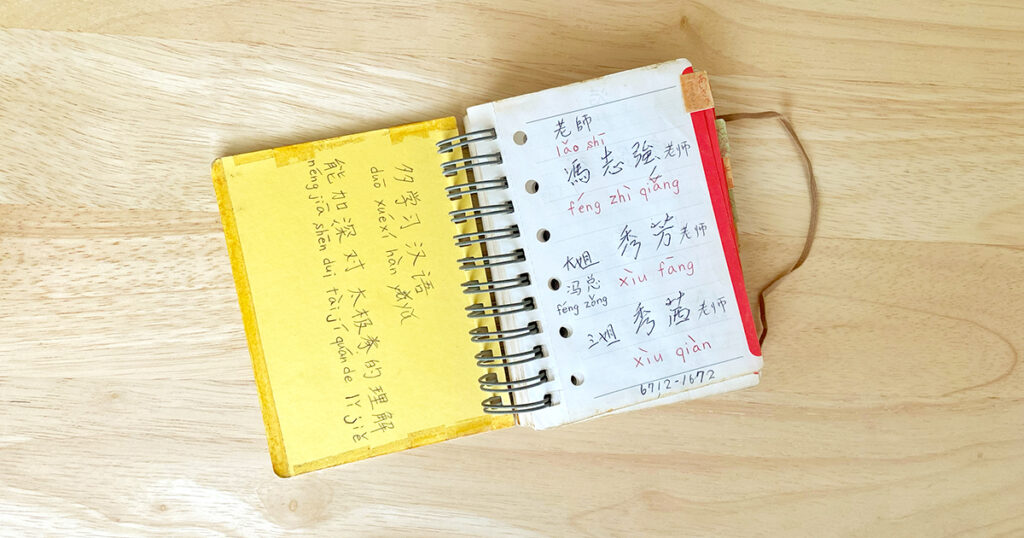 多学习汉语
duō xuéxí hàn yǔ
能加深对太极拳的理解
néng jiā shēn duì tài jí quán de lǐ jiě
老師
lǎo shī
馮志強老师
féng zhì qiáng
秀芳老师
大姐
xiù fāng
冯总
féng zǒng
秀茜老师
三姐
xiù qiàn
6712-1672